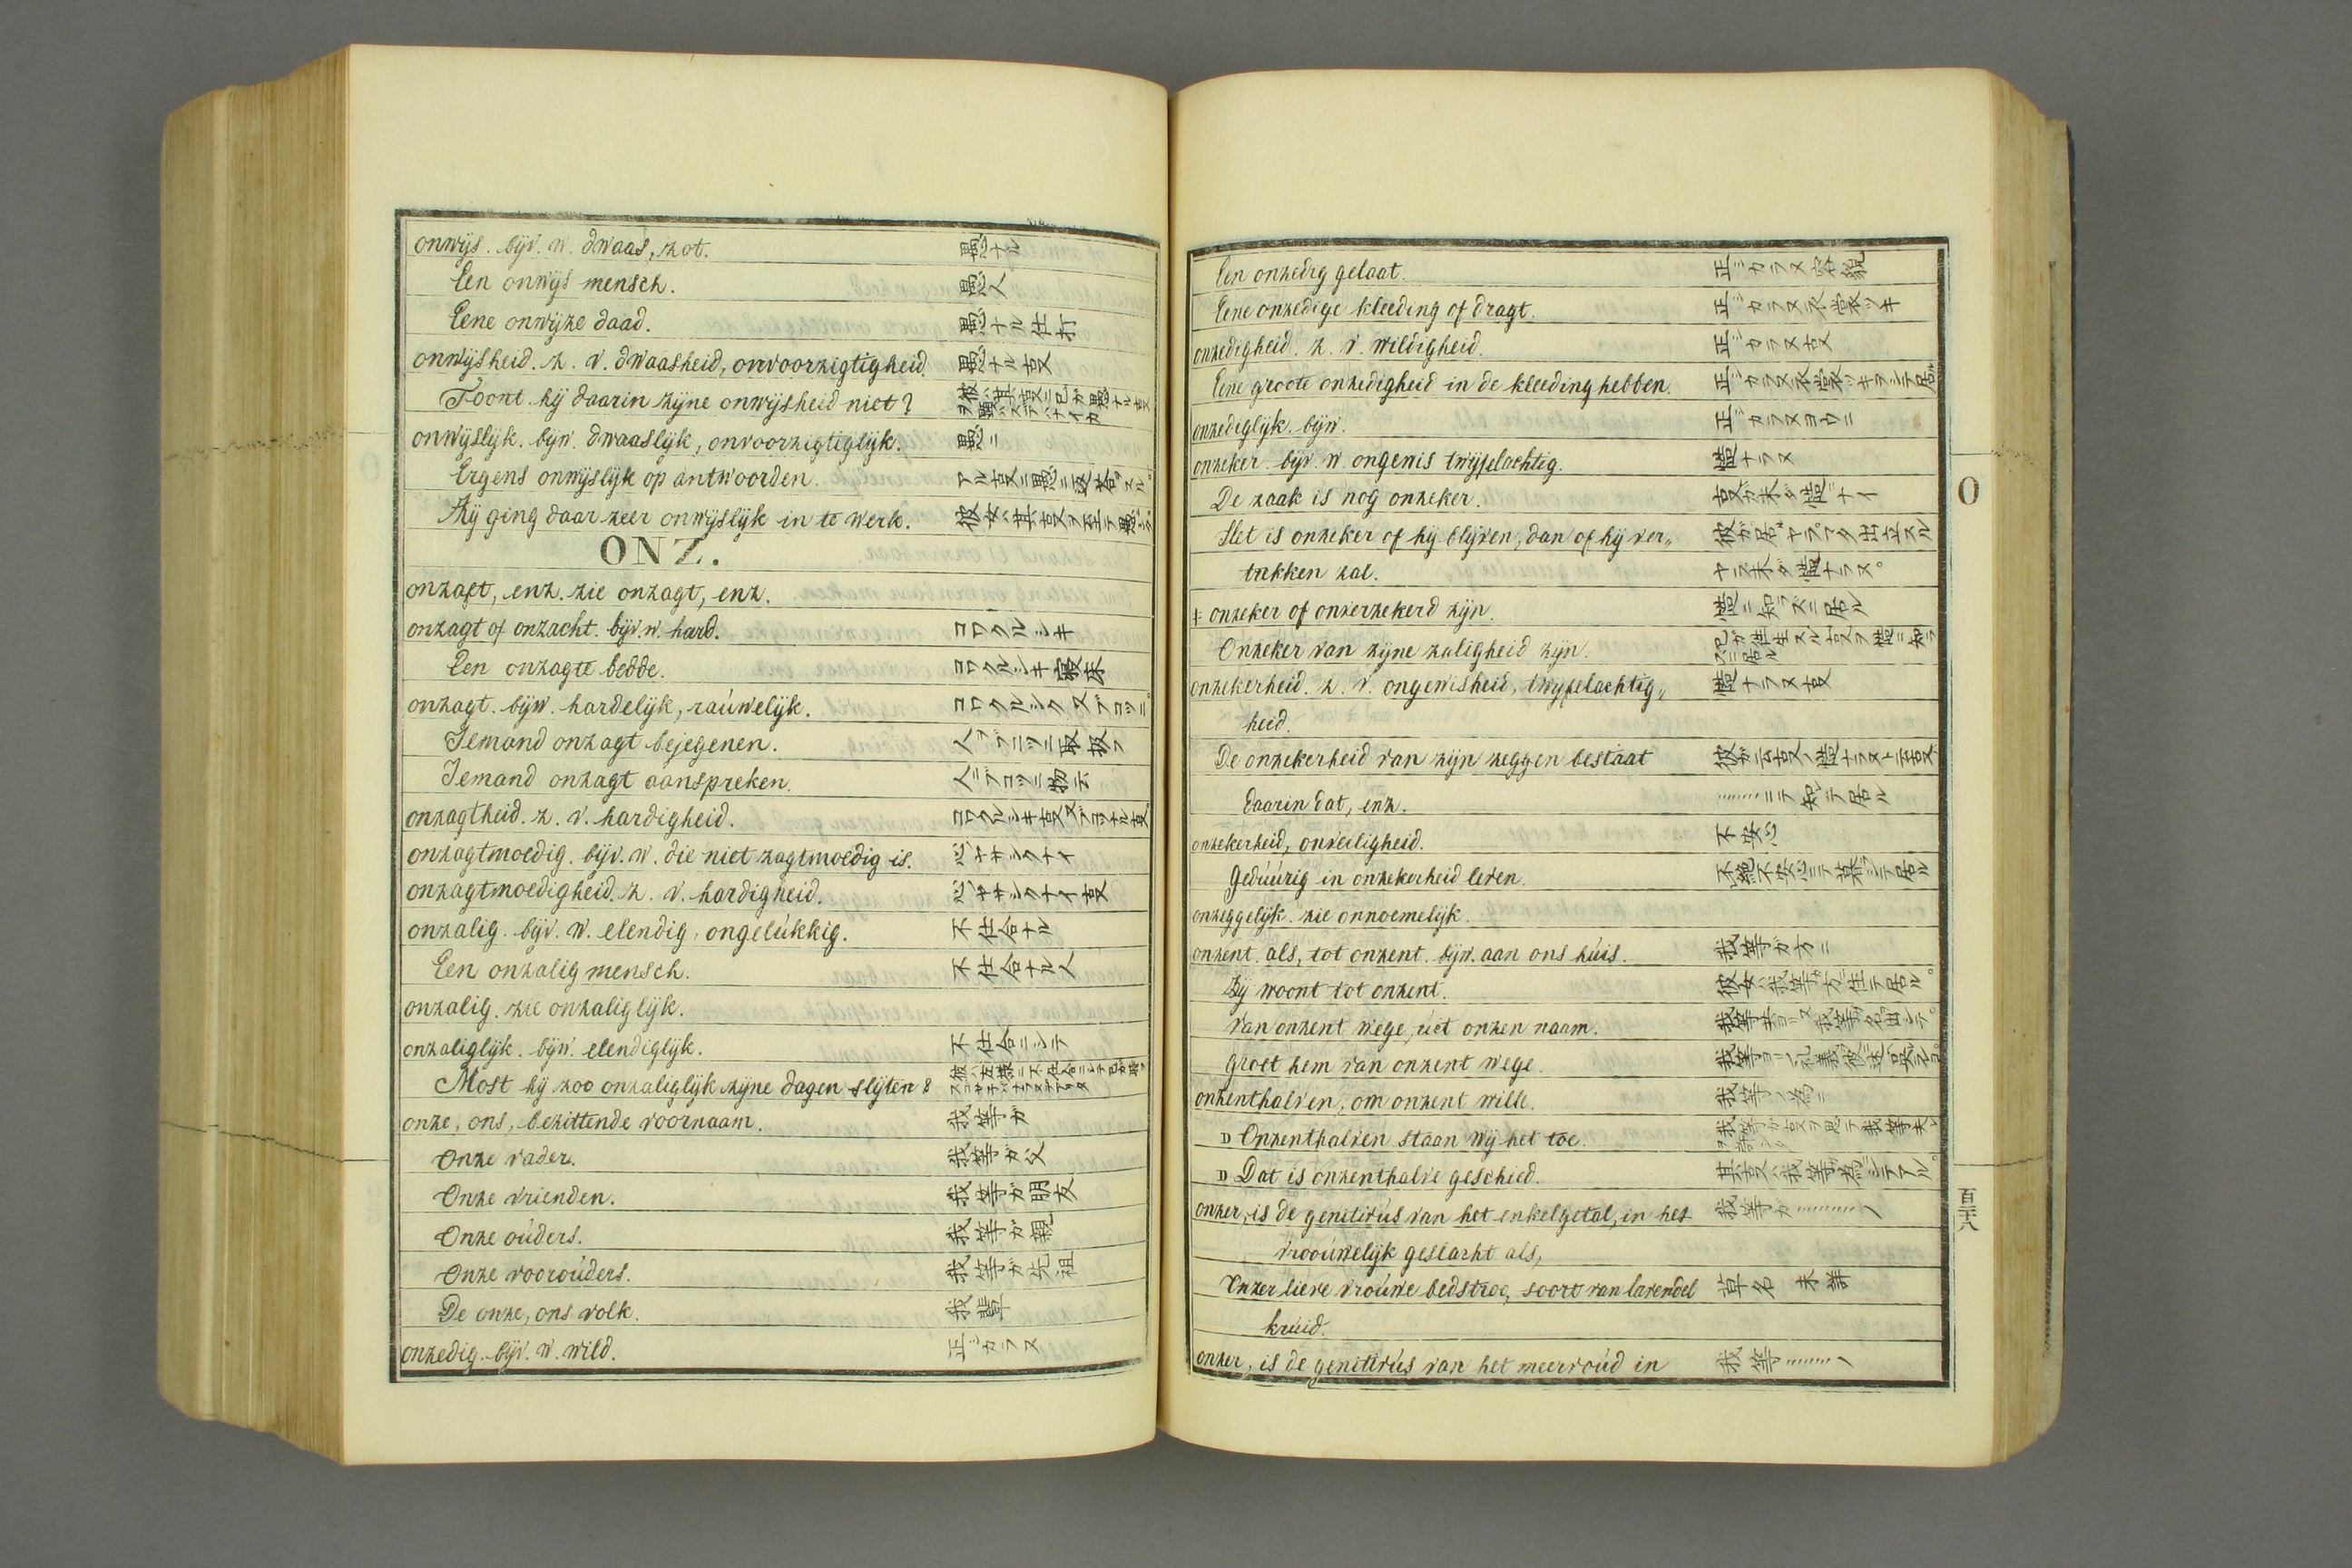 onwijs. bijv. w. dwaas, zot. 愚ナル
Een onwijs mensch. 愚人
Eene onwijze daad. 愚ナル仕打
onwijsheid. z. v. dwaasheid, onvoorzigtigheid. 愚ナル𫝆
Toont hij daarin zijne onwijsheid niet?
onwijslijk. bijw. dwaaslijk, onvoorzigtiglijk. 愚ニ
Ergens onwijslijk op antwoorden.
Zij ging daar zeer onwijslijk in te werk.
ONZ.
onzaft, enz. zie onzagt, enz.
onzagt of onzacht. bijv. w. hard. コワクルシキ
Een onzagte bedde. コワクルシキ寢床
onzagt. bijw. hardelijk, raúwelijk.
Iemand onzagt bejegenen.
Iemand onzagt aanspreken.
onzagtheid. z. v. hardigheid.
onzagtmoedig. bijv. w. die niet zagtmoedig is. 心ヤサシクナイ
onzagtmoedigheid. z. v. hardigheid. 心ヤサシクナイ
onzalig. bijv. w. elendig, ongelúkkig. 不仕合ナル
Een onzalig mensch. 不仕合ナル人
onzalig. zie onzaliglijk.
onzaliglijk. bijw. elendiglijk. 不仕合ニシテ
Most hij zoo onzaliglijk zijne dagen slijten?
onze, ons, bezittende voornaam. 我等ガ
Onze vader. 我等ガ父
Onze vrienden. 我等ガ朋友
Onze oúders. 我等ガ親
Onze vooroúders. 我等ガ先祖
De onze, ons volk. 我輩
onzedig. bijv. w. wild. 正シカラヌ
Een onzedig gelaat. 正シカラヌ容貌
Eene onzedige kleeding of dragt. 正シカラヌ衣裳ツキ
onzedigheid. z. v. wildigheid. 正シカラヌ
Eene groote onzedigheid in de kleeding hebben. 正シカラヌ衣裳ツキヲシテ居ル
onzediglijk. bijw. 正シカラヌヨウニ
onzeker. bijv. w. ongewis twijfelachtig. 慥ナラヌ
De zaak is nog onzeker.
Het is onzeker of hij blijven, dan of hij ver„
trekken zal.
onzeker of onverzekerd zijn. 慥ニ知ラズニ居ル
Onzeker van zijne zaligheid zijn.
onzekerheid. z. v. ongewisheid, twijfelachtig„ 慥ナラヌ
heid.
De onzekerheid van zijn zeggen bestaat
daarin dat, enz. ………ニテ知テ居ル
onzekerheid, onveiligheid. 不安心
Gedúúrig in onzekerheid leven. 不絶不安心ニテ暮シテ居ル
onzeggelijk. zie onnoemelijk.
onzent. als, tot onzent. bijw. aan ons húis. 我等ガ方ニ
Zij woont tot onzent.
Van onzent wege, úit onzen naam.
Groet hem van onzent wege.
onzenthalven, om onzent wille. 我等ノ為ニ
D Onzenthalven staan wij het toe.
D Dat is onzenthalve geschied.
onzer, is de genitivús van het enkelgetal, in het 我等ガ………ノ
vroúwelijk geslacht als,
Onzer lieve vroúwe bedstroo, soort van lavendel 草名 未詳
krúid.
onzer, is de genitivús van het meervoúd in 我等………ノ
O
百三十八